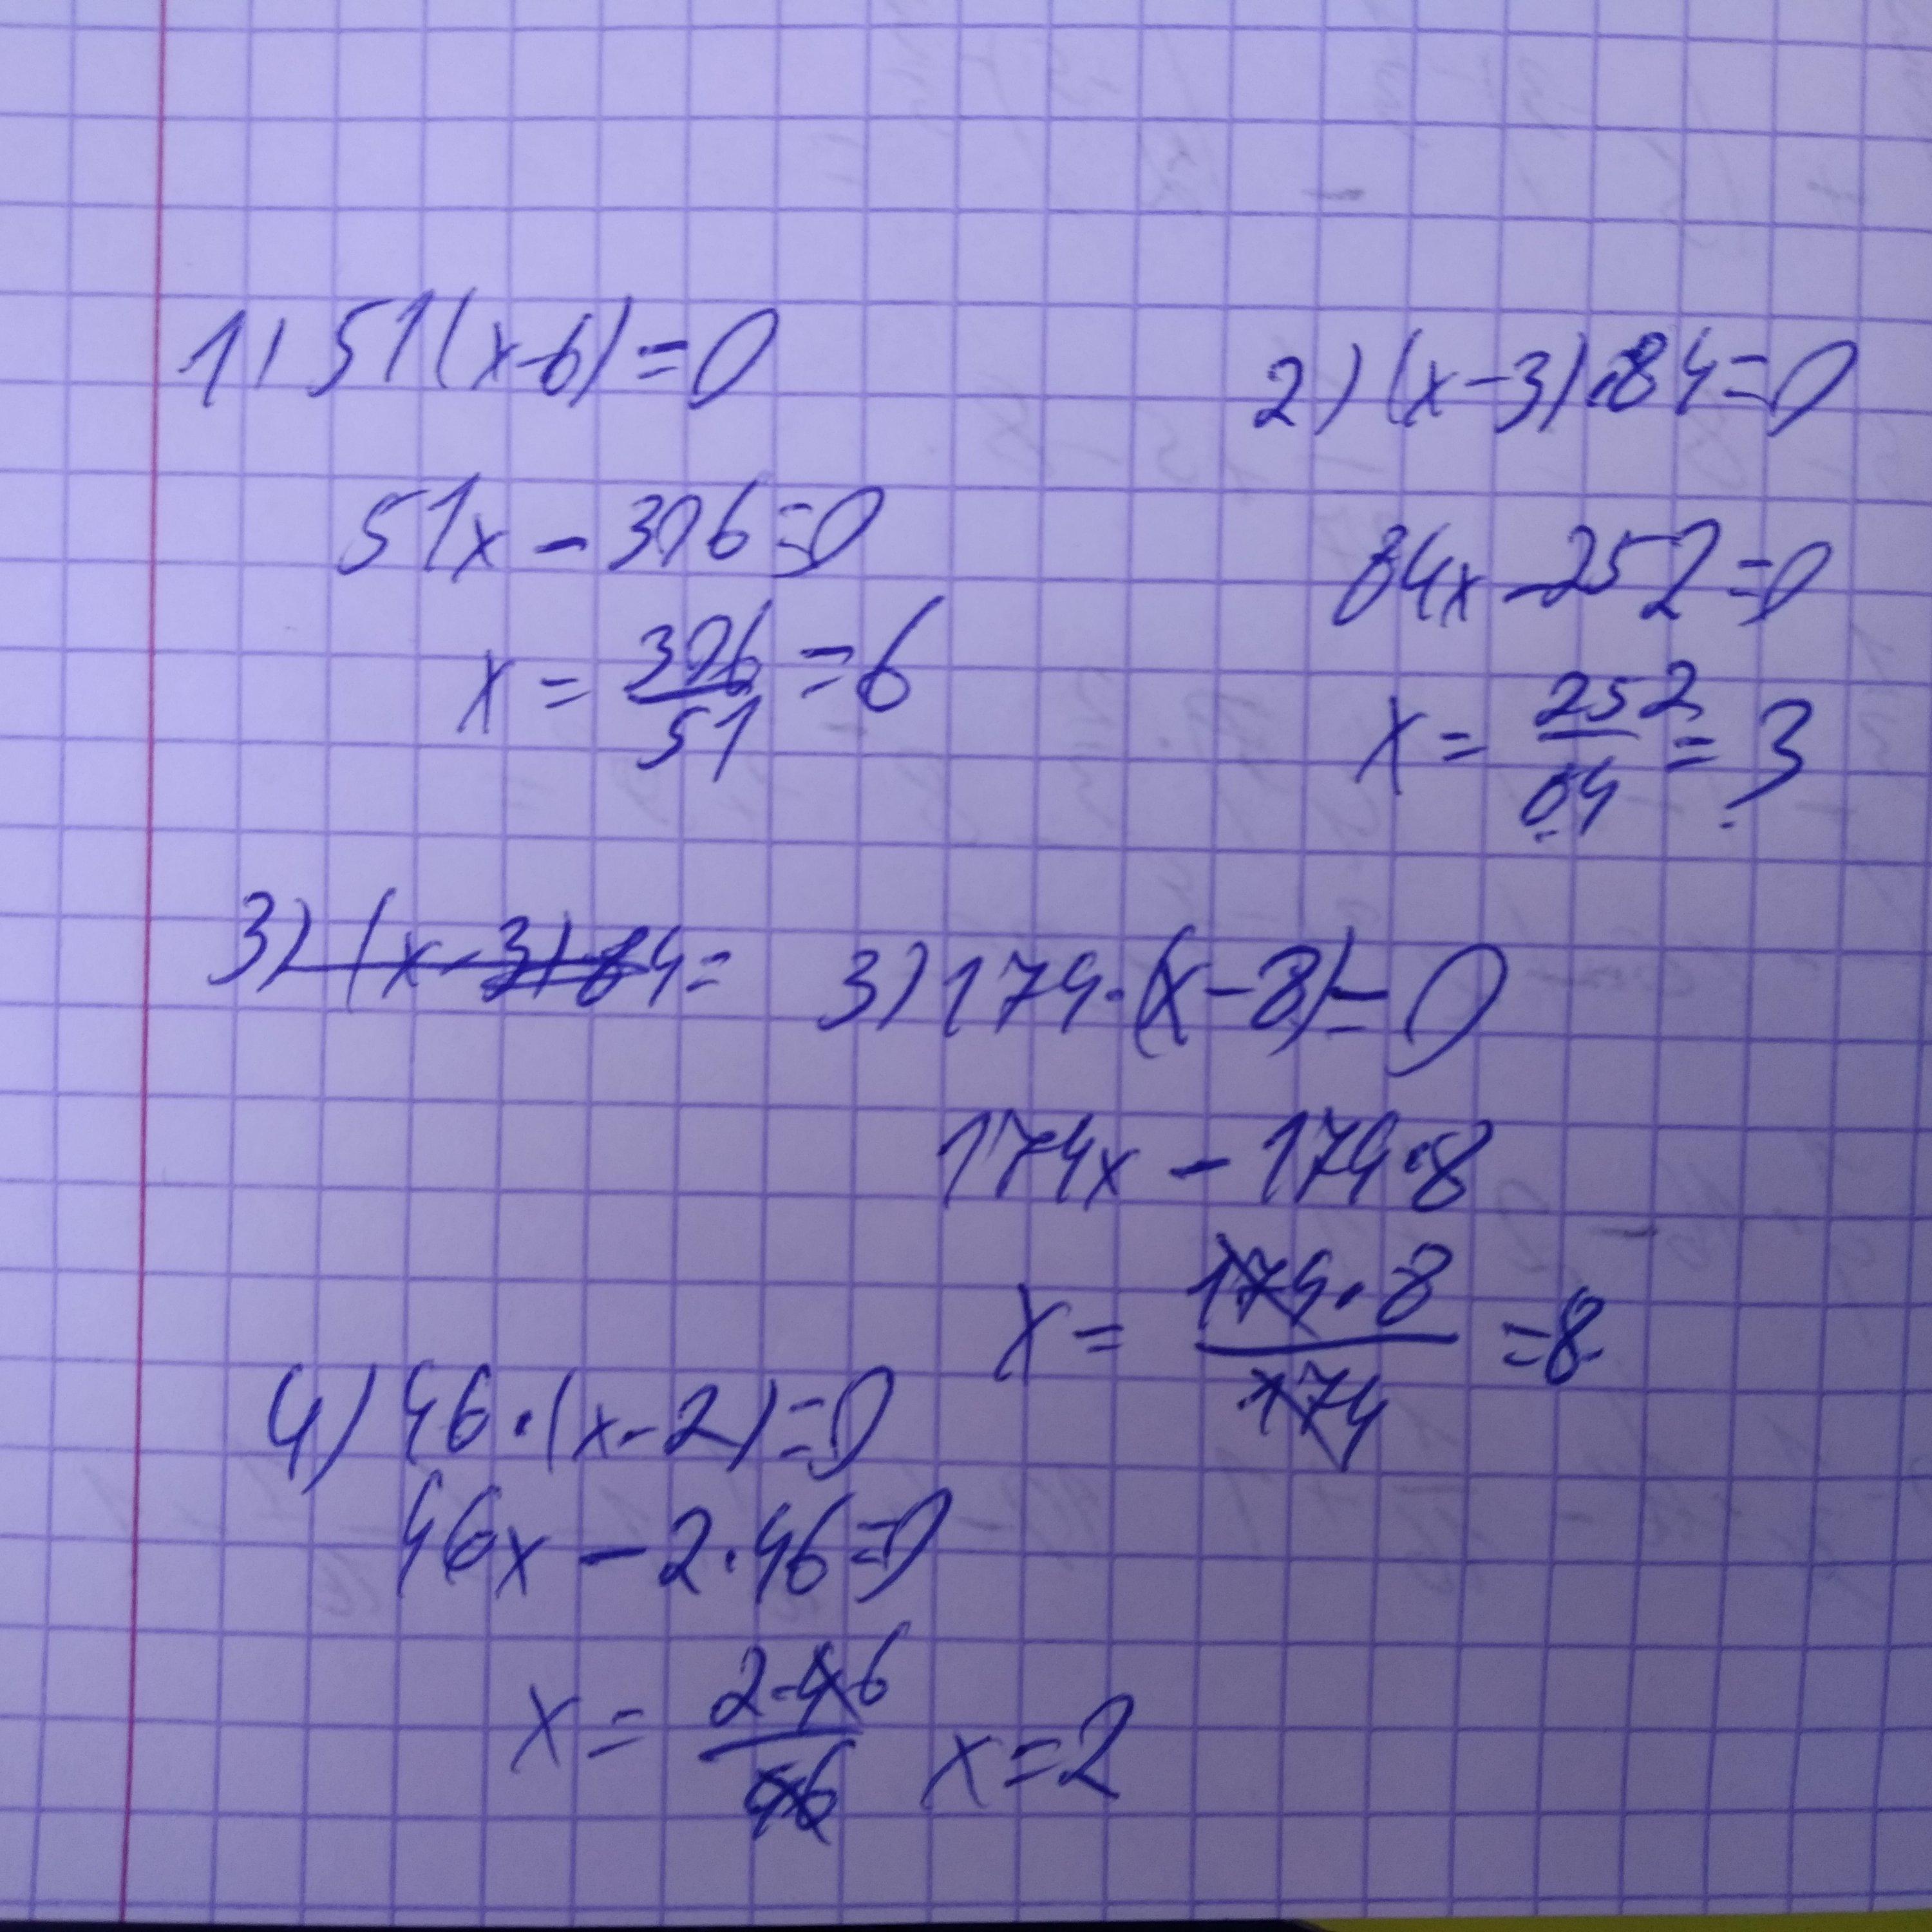 1) 51(x-6)=0
51x - 306=0
x = 306/51 = 6
2) (x-3)·84=0
84x - 252=0
x = 252/84 = 3
3) (x-3)·84=
3) 174·(x-8)=0
174x - 174·8
x = 174·8/174 = 8
4) 46·(x-2)=0
46x - 2·46=0
x = 2·46/46 x=2